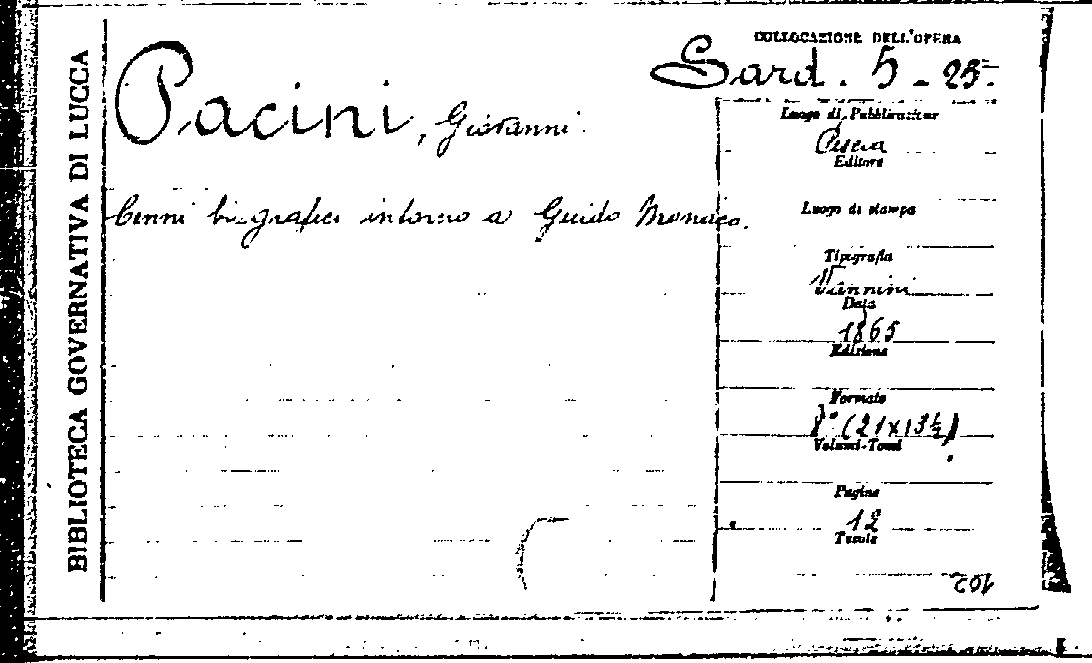 BIBLIOTECA GOVERNATIVA DI LUCCA
Pacini, Giovanni
Cenni biografici intorno a Guido Monaco.
COLLOCAZIONE DELL'OPERA
Sard. 5-25.
Luogo di Pubblicazione
Pescia
Editore
Luogo di stampa
Tipografia
Vannini
Data
1865
Edizione
Formato
8° (21x13½)
Volumi-Tomi
Pagine
12
Tavole